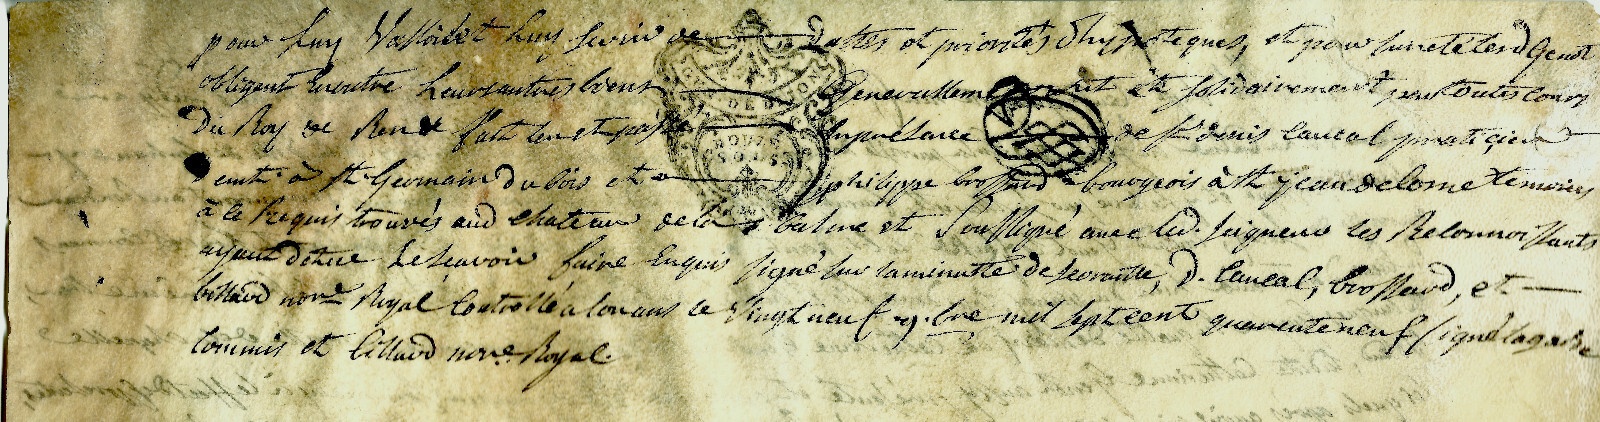 pour luy Valloir et luy servir de dattes et priorités d'hypoteques, et pour sureté lesd Genot
obligent en outre leurs autres biens Generallement et solidairement par toutes cours
du Roy de Rente fait leu et passé en presence de Sr denis Cancal praticien
demt à St Germain du bois et philippe brossard bourgeois à St jean temoins
à ce Requis trouvés aud chateau de la balme et Soussigné avec led. seigneur les Reconnoissants
ayant declaré ne le scavoir faire Enquis signé sur la minutte De Scorailles, D. Cancal, brossard, et
billard nore Royal Controllé a louans ce Vingt neuf 9.bre mil sept cent quarente neuf signé
Commis et billard nore Royal.